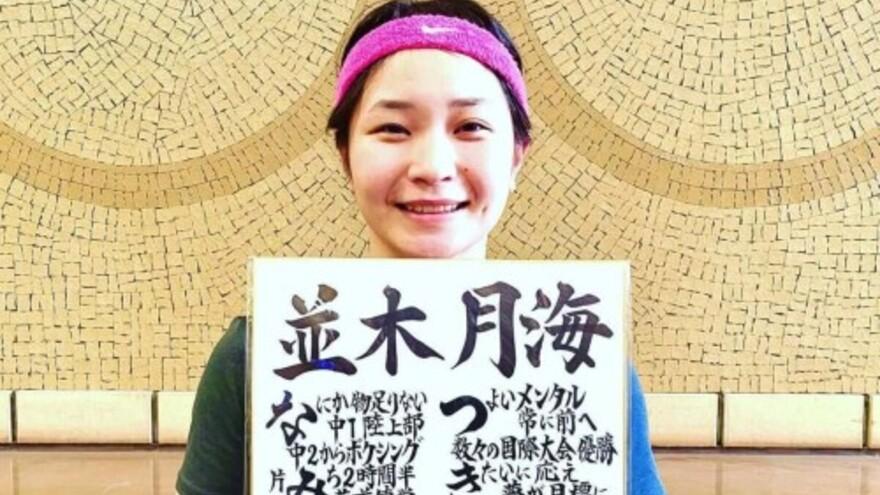 並木月海
なにか物足りない
中1陸上部
中2からボクシング
片みち2時間半
つよいメンタル
常に前へ
数々の国際大会優勝
きたいに応え